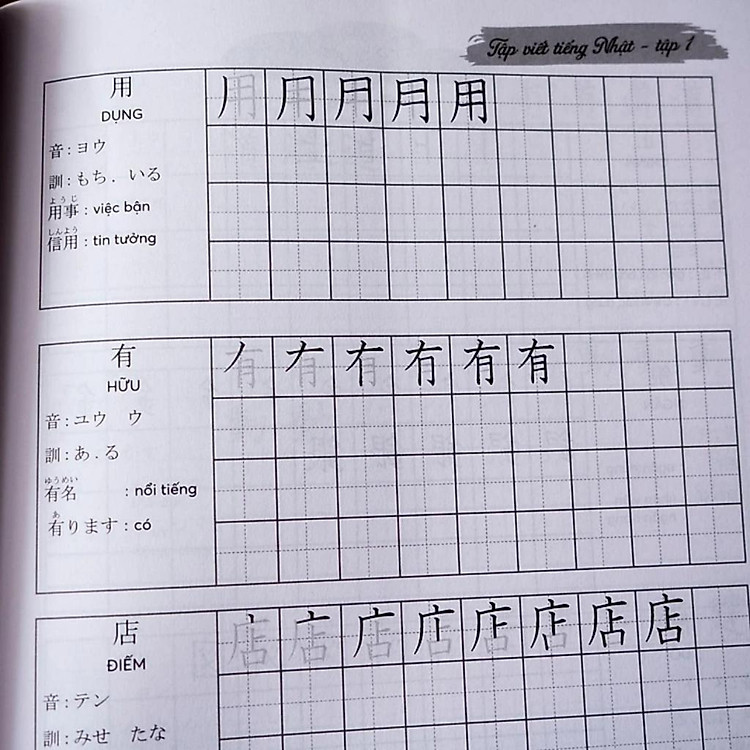 Tập viết tiếng Nhật - tập 1
用
DỤNG
音: ヨウ
訓: もち. いる
ようじ
用事 : việc bận
しんよう
信用 : tin tưởng
用
有
HỮU
音: ユウ ウ
訓: あ. る
ゆうめい
有名 : nổi tiếng
あ
有ります : có
有
店
ĐIẾM
音: テン
訓: みせ たな
店